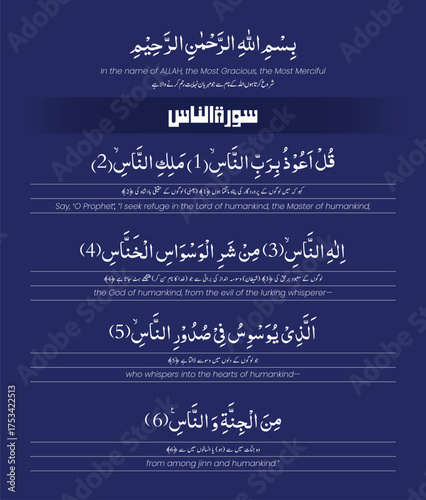 بِسْمِ اللهِ الرَّحْمٰنِ الرَّحِيْمِ
In the name of ALLAH, the Most Gracious, the Most Merciful
شروع کرتا ہوں اللہ کے نام سے جو مہربان نہایت رحم کرنے والا ہے
سورة الناس
قُلْ اَعُوْذُ بِرَبِّ النَّاسِۙ(1) مَلِكِ النَّاسِۙ(2)
کہو کہ میں لوگوں کے پروردگار کی پناہ مانگتا ہوں ﴿۱﴾ (یعنی) لوگوں کے حقیقی بادشاہ کی ﴿۲﴾
Say, "O Prophet", "I seek refuge in the Lord of humankind, the Master of humankind,
اِلٰهِ النَّاسِۙ(3) مِنْ شَرِّ الْوَسْوَاسِ الْخَنَّاسِ(4)
لوگوں کے معبود برحق کی ﴿۳﴾ (شیطان) وسوسہ انداز کی برائی سے جو (خدا کا نام سن کر) پیچھے ہٹ جاتا ہے ﴿۴﴾
the God of humankind, from the evil of the lurking whisperer—
الَّذِىْ يُوَسْوِسُ فِىْ صُدُوْرِ النَّاسِۙ(5)
جو لوگوں کے دلوں میں وسوسے ڈالتا ہے ﴿۵﴾
who whispers into the hearts of humankind—
مِنَ الْجِنَّةِ وَ النَّاسِ(6)
وہ جنات میں سے (ہو) یا انسانوں میں سے ﴿۶﴾
from among jinn and humankind."
Adobe Stock | #1753422513